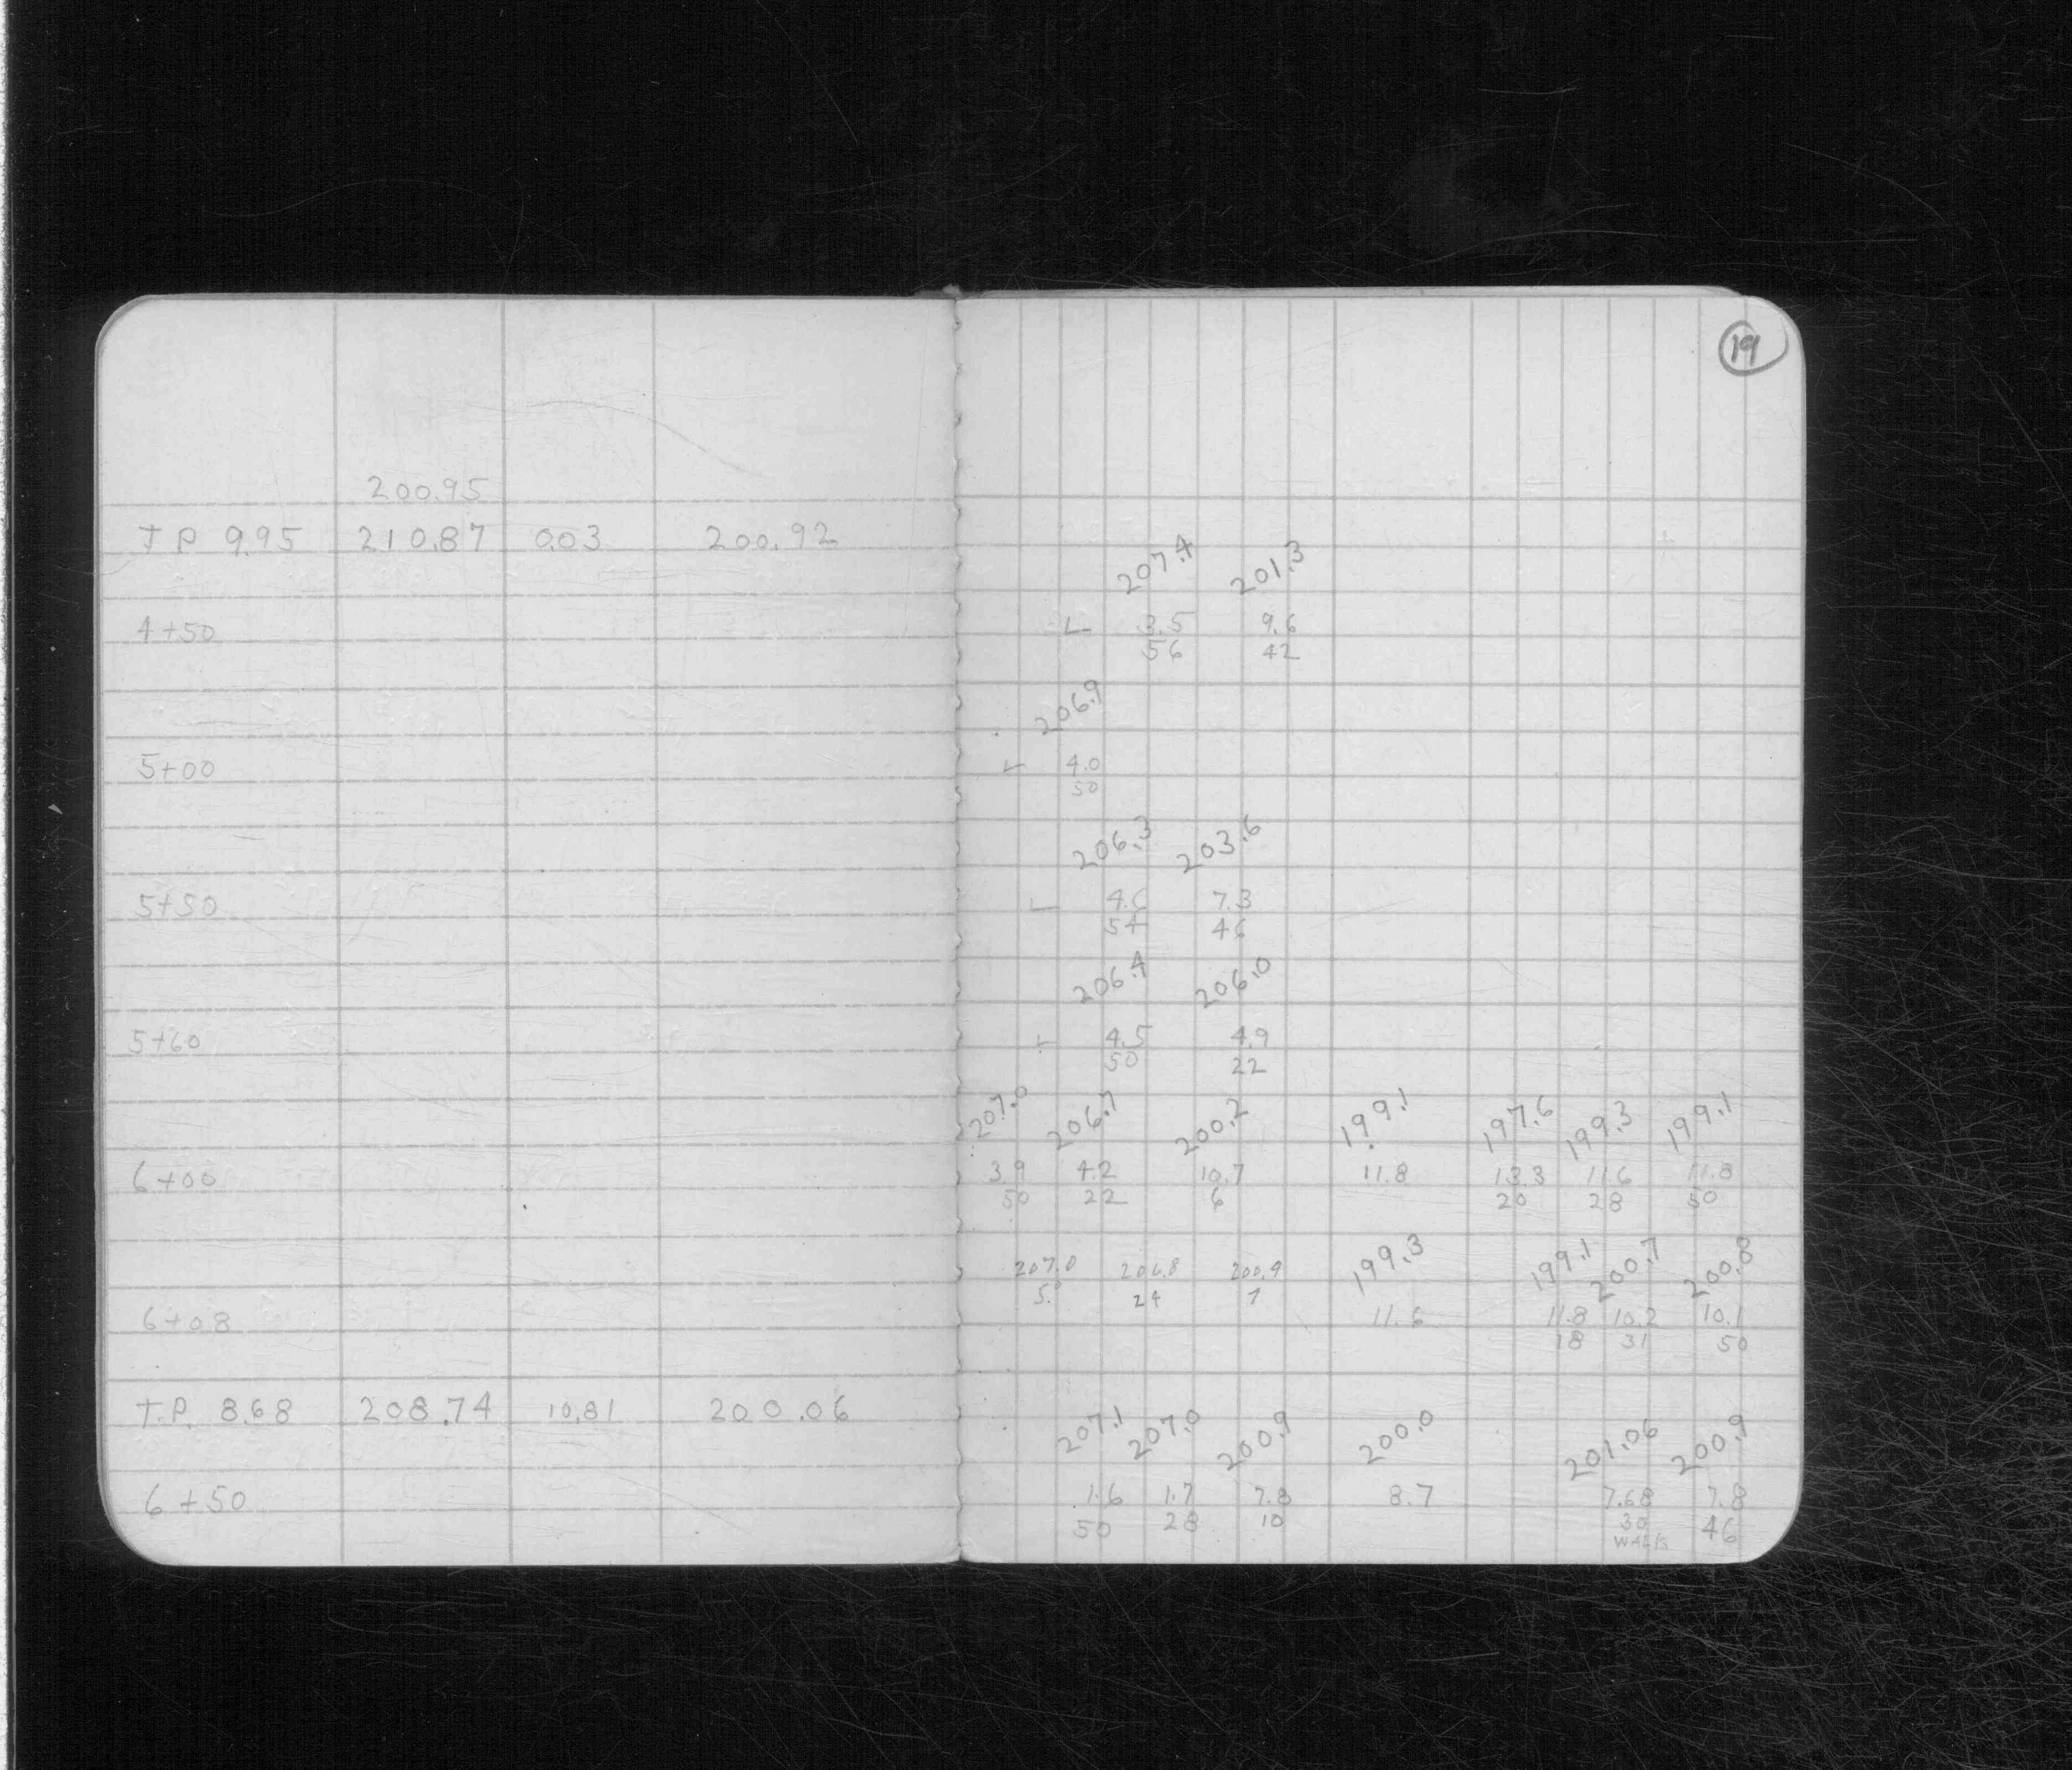 19
200.95
T P 9.95 210.87 0.03 200.92
207.4 201.3
4+50 L 3.5 9.6
56 42
206.9
5+00 L 4.0
50
206.3 203.6
5+50 L 4.6 7.3
54 46
206.4 206.0
5+60 L 4.5 4.9
50 22
207.0 206.7 200.2 199.1 197.6 199.3 199.1
6+00 3.9 4.2 10.7 11.8 13.3 11.6 11.8
50 22 6 20 28 50
207.0 206.8 200.9 199.3 199.1 200.7 200.8
50 24 7
6+08 11.6 11.8 10.2 10.1
18 31 50
T.P. 8.68 208.74 10.81 200.06
207.1 207.0 200.9 200.0 201.06 200.9
6+50 1.6 1.7 7.8 8.7 7.68 7.8
50 28 10 30 46
WALK